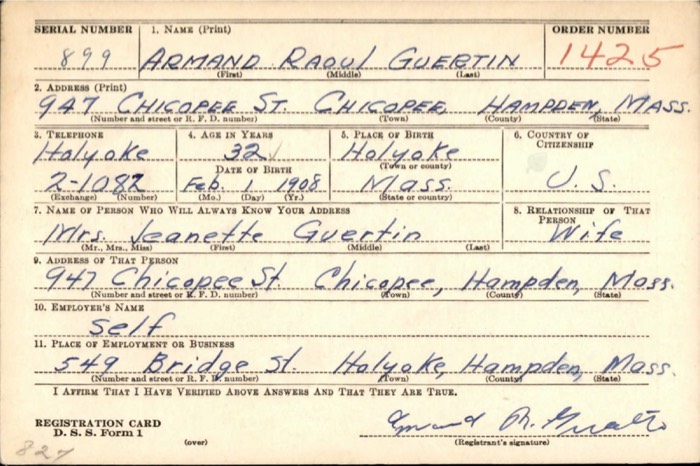 SERIAL NUMBER 1. NAME (Print) ORDER NUMBER
899 ARMAND RAOUL GUERTIN 1425
(First) (Middle) (Last)
2. ADDRESS (Print)
947 CHICOPEE ST. CHICOPEE, HAMPDEN, MASS.
(Number and street or R. F. D. number) (Town) (County) (State)
3. TELEPHONE 4. AGE IN YEARS 5. PLACE OF BIRTH 6. COUNTRY OF CITIZENSHIP
Holyoke 32 Holyoke
DATE OF BIRTH (Town or county)
2-1082 Feb. 1 1908 Mass. U. S.
(Exchange) (Number) (Mo.) (Day) (Yr.) (State or country)
7. NAME OF PERSON WHO WILL ALWAYS KNOW YOUR ADDRESS 8. RELATIONSHIP OF THAT PERSON
Mrs. Jeanette Guertin Wife
(Mr., Mrs., Miss) (First) (Middle) (Last)
9. ADDRESS OF THAT PERSON
947 Chicopee St. Chicopee, Hampden, Mass.
(Number and street or R. F. D. number) (Town) (County) (State)
10. EMPLOYER'S NAME
Self
11. PLACE OF EMPLOYMENT OR BUSINESS
549 Bridge St. Holyoke, Hampden, Mass.
(Number and street or R. F. D. number) (Town) (County) (State)
I AFFIRM THAT I HAVE VERIFIED ABOVE ANSWERS AND THAT THEY ARE TRUE.
REGISTRATION CARD
D. S. S. Form 1
(over) (Registrant's signature)
827